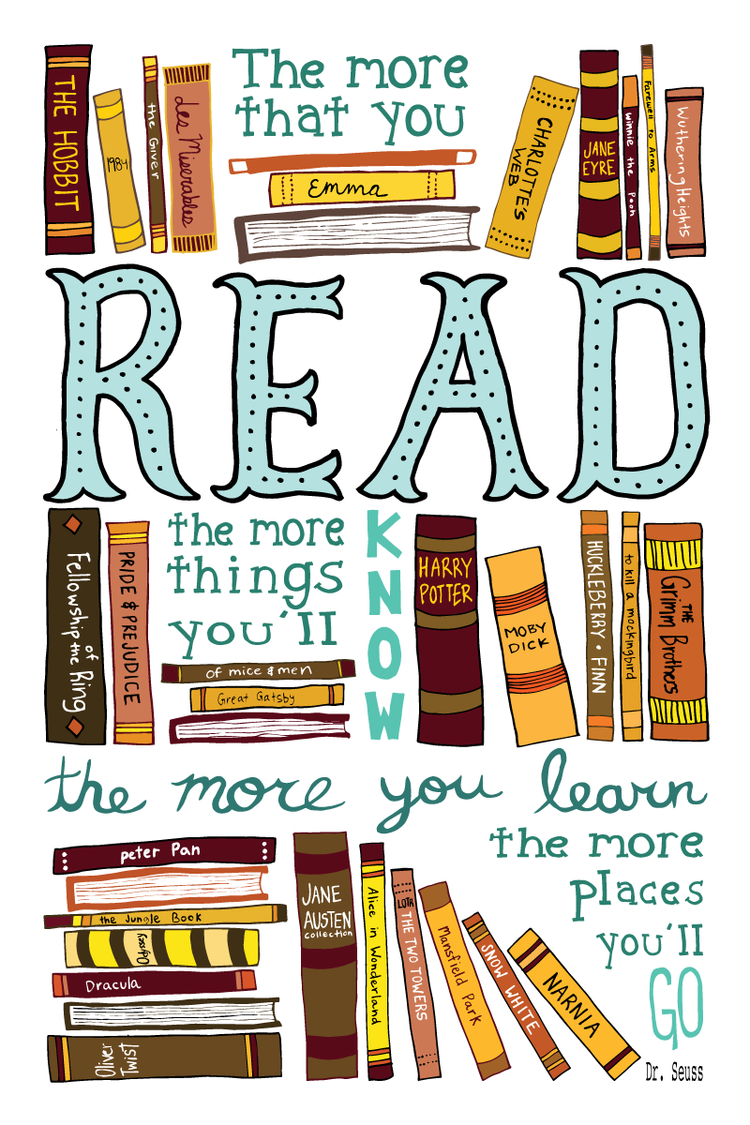 THE HOBBIT
1984
the Giver
Les Miserables
The more
that you
Emma
CHARLOTTE'S
WEB
JANE
EYRE
Winnie the Pooh
Farewell to Arms
Wuthering Heights
READ
Fellowship of
the Ring
PRIDE & PREJUDICE
the more
things
you'll
of mice & men
Great Gatsby
KNOW
HARRY
POTTER
MOBY
DICK
HUCKLEBERRY • FINN
to kill a mockingbird
THE
Grimm Brothers
the more you learn
peter Pan
the Jungle Book
Odyssey
Dracula
Oliver
Twist
JANE
AUSTEN
collection
Alice in Wonderland
LOTR THE TWO TOWERS
Mansfield Park
SNOW WHITE
NARNIA
the more
places
you'll
GO
Dr. Seuss